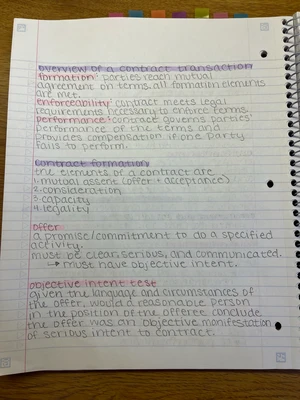 overview of a contract transaction
formation: parties reach mutual
agreement on terms. all formation elements
are met.
enforceability: contract meets legal
requirements necessary to enforce terms.
performance: contract governs parties'
performance of the terms and
provides compensation if one party
fails to perform.
contract formation
the elements of a contract are
1. mutual assent (offer + acceptance)
2. consideration
3. capacity
4. legality
offer
a promise/commitment to do a specified
activity.
must be clear, serious, and communicated.
→ must have objective intent.
objective intent test
given the language and circumstances of
the offer, would a reasonable person
in the position of the offeree conclude
the offer was an objective manifestation
of serious intent to contract.